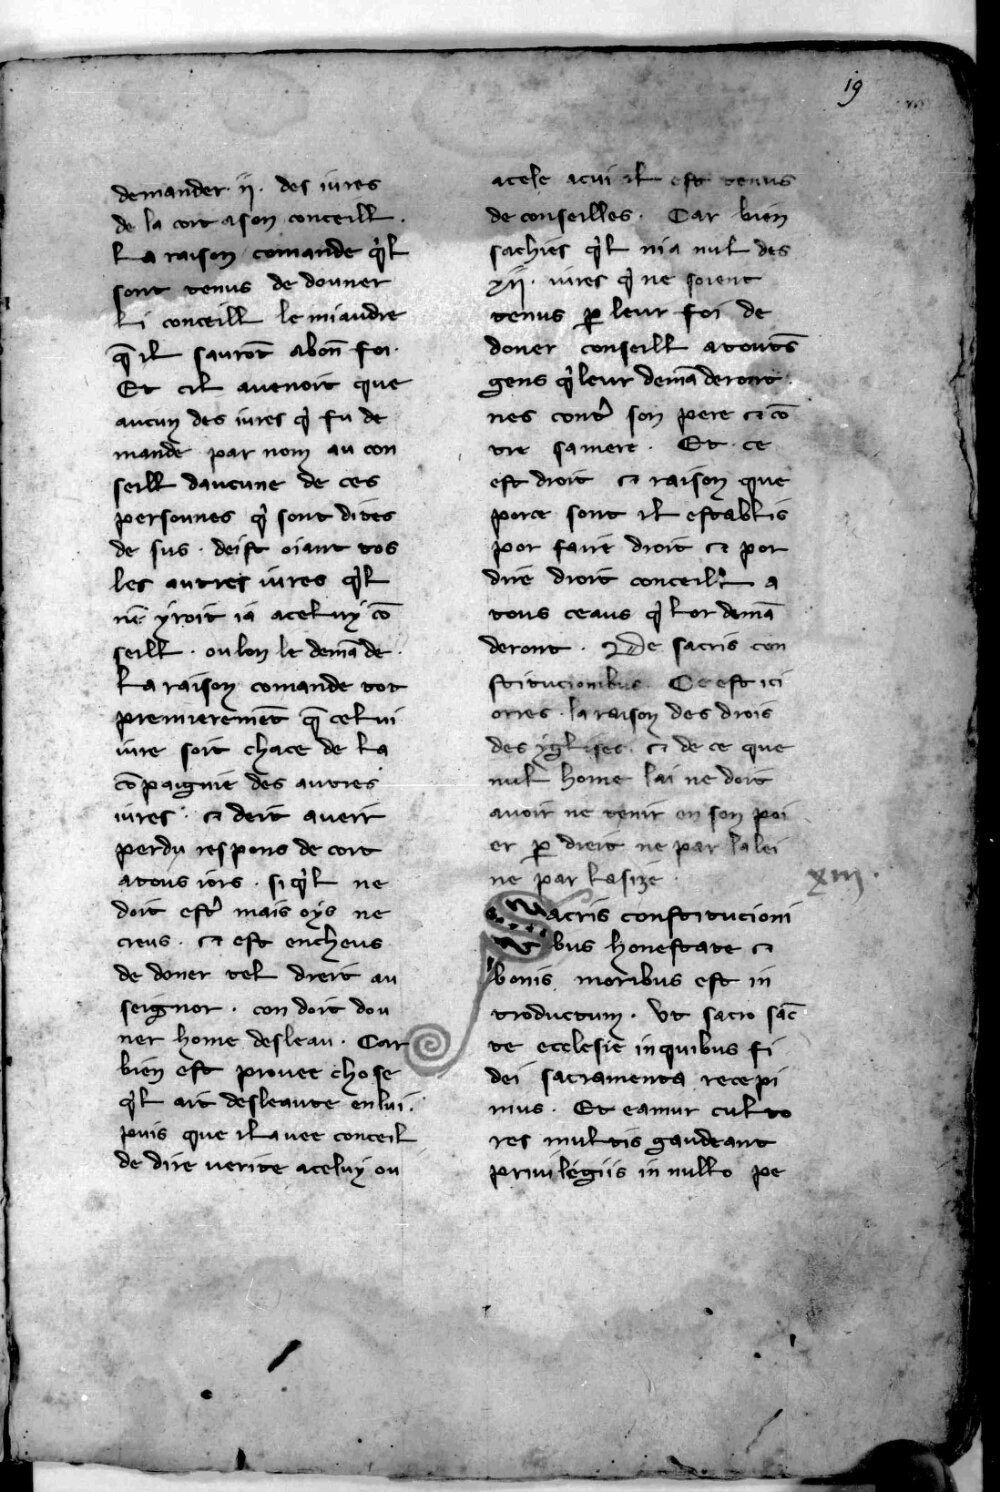 19
demander · ii · des iures
de la cort a son conceill ·
La raison comande q'l
sont tenus de donner
li conceill le miaudre
q̄ il sauroñt a boñ foi ·
Et cil auenoit que
aucun des iures q' fu de
mande par nom au con
seill daucune de ces
persounes q' sont dites
de sus · deist oiant tos
les autres iures q'l
nē yroit ia a celuy cō
seill · ou lon le demāde ·
La raison comande tot
premieremēt q̄ celui
iure soit chace de la
cōpaignie des autres
iures · ⁊ deit aueir
perdu respons de cort
a tous iors · si q'l ne
doit est' mais oys ne
creus · ⁊ est encheus
de doner tel dreit au
seignor · con doit dou
ner home desleau · Car
bien est prouee chose
q'l ait desleaute en lui ·
puis que il a uee conceil
de dire uerite a celuy ou
a cele a cui il est tenus
de conseilles · Car bien
sachies q'l ni a nul des
xii · iures q' ne soient
tenus ꝑ leur foi de
doner conseill a touts
gens q' leur demāderont ·
nes cont' son pere ⁊ cō
tre sa mere · Et ce
est droit ⁊ raison que
porce sont il establis
por faire droit ⁊ por
dire droit conceill a
tous ceaus q' lor demā
deront · De sacris con
stitucionibus · Ce est ici
orres · la raison des drois
des yglises · ⁊ de ce que
nul home lai ne doit
auoir ne tenir en son poi
er ꝑ dreit ne par la lei
ne par lasize ·
xiii ·
Sacris constitucioni
bus honestate ⁊
bonis moribus est in
troductum · Vt sacro sāc
te ecclesie in quibus fi
dei sacramenta recepi
mus · Et eamur culto
res multis gaudeant
priuilegiis in nullo pe